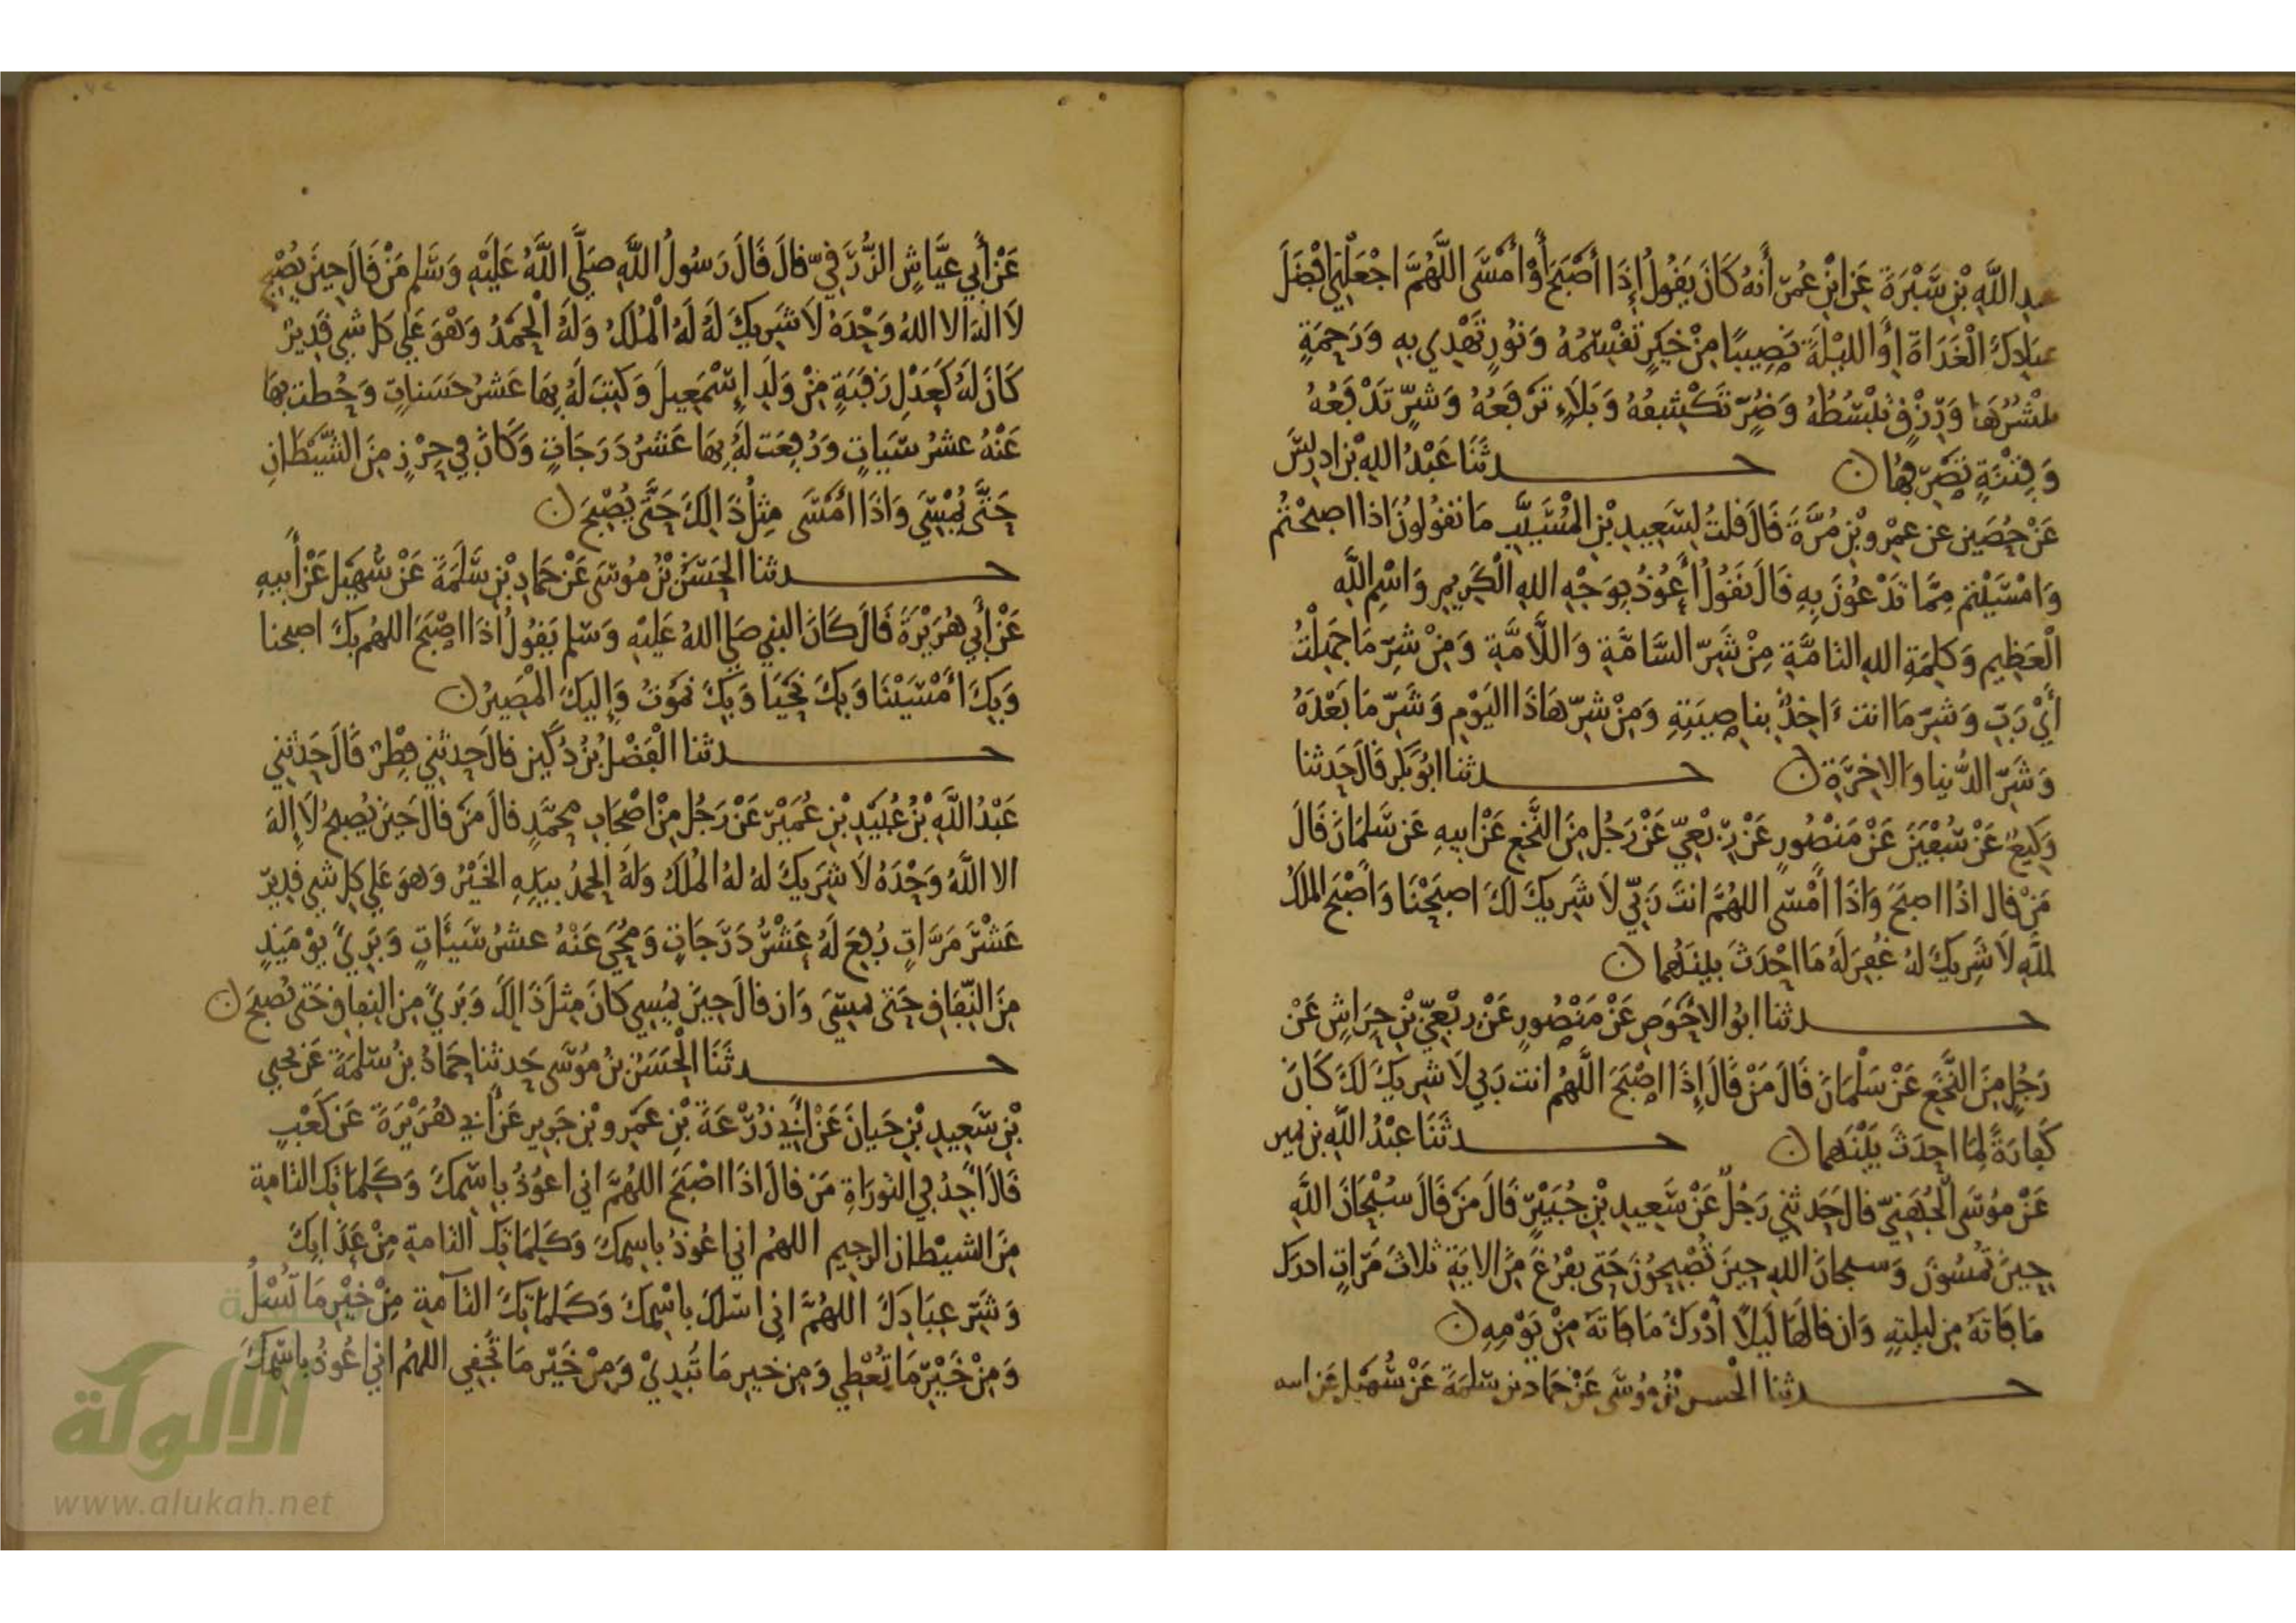 عبد اللَّهِ بْنِ سَبْرَةَ عَنِ ابْنِ عُمَرَ أَنَّهُ كَانَ يَقُولُ إِذَا أَصْبَحَ أَوْ أَمْسَى اللَّهُمَّ اجْعَلْنِي أَفْضَلَ
عِبَادِكَ الْغَدَاةَ أَوِ اللَّيْلَةَ نَصِيبًا مِنْ خَيْرٍ تَقْسِمُهُ وَنُورٍ تَهْدِي بِهِ وَرَحْمَةٍ
تَنْشُرُهَا وَرِزْقٍ تَبْسُطُهُ وَضُرٍّ تَكْشِفُهُ وَبَلَاءٍ تَرْفَعُهُ وَشَرٍّ تَدْفَعُهُ
وَفِتْنَةٍ تَصْرِفُهَا ن حدثَنَا عَبْدُ اللهِ بْنُ إدريسَ
عَنْ حُصَيْنٍ عَن عَمْرِو بْنِ مُرَّةَ قَالَ قُلتُ لِسَعِيدِ بْنِ الْمُسَيَّبِ مَا تَقُولُونَ إذا اصبحْتُمْ
وَامْسَيْتُمْ مِمَّا تَدْعُونَ بِهِ قَالَ نَقُولُ أَعُوذُ بِوَجْهِ اللهِ الْكَرِيمِ وَاسْمِ اللَّهِ
الْعَظِيمِ وَكَلِمَةِ اللهِ التَّامَّةِ مِنْ شَرِّ السَّامَّةِ وَاللَّامَّةِ وَمِنْ شَرِّ مَا جَعَلْتَ
أَيْ رَبِّ وَشَرِّ مَا انتَ ءَاخِذٌ بِناصِيَتِهِ وَمِنْ شَرِّ هَاذَا اليَوْمِ وَشَرِّ مَا بَعْدَهُ
وَشَرِّ الدُّنيا وَالاخِرَةِ ن حدثنا ابُو بَكْر قَالَ حَدثنا
وَكِيعٌ عَنْ سُفْيَنَ عَنْ مَنْصُورٍ عَنْ رِبْعِيٍّ عَنْ رَجُلٍ مِنَ النَّخَعِ عَنْ ابِيهِ عَن سَلْمَانَ قَالَ
مَنْ قال اذَا اصبَحَ وَاذَا أَمْسَى اللهُمَّ انتَ رَبِّي لَا شَرِيكَ لَكَ اصبَحْنَا وَأَصْبَحَ المُلكُ
للَّهِ لَا شَرِيكَ لهُ غُفِرَ لَهُ مَا احْدَثَ بينَهُما ن
حدثنا ابُو الاحْوَصِ عَنْ مَنْصُورٍ عَنْ رِبْعِيِّ بْنِ حِرَاشٍ عَنْ
رَجُلٍ مِنَ النَّخَعِ عَنْ سَلْمَانَ قَالَ مَنْ قَالَ إِذَا اصْبَحَ اللَّهُمَّ انتَ رَبِّي لَا شَرِيكَ لَكَ كَانَ
كَفارَةً لِمَا احدَثَ بَيْنَهُما ن حدثَنَا عَبْدُ اللَّهِ بن نمير
عَنْ مُوسَى الْجُهَنِيِّ قال حَدَثَنِي رَجُلٌ عَنْ سَعِيدِ بْنِ جُبَيْرٍ قَالَ مَن قَالَ سُبْحَانَ اللَّهِ
حِينَ تُمْسُونَ وَسبحانَ اللهِ حِينَ تُصْبِحُونَ حَتى يفْرُغَ مِنَ الايَةِ ثلاثَ مَرّاتٍ ادرَكَ
مَا فَاتَهُ مِن لَيلتِهِ وَان قالَهَا لَيْلًا أَدْرَكَ مَا فَاتَهُ مِنْ يَوْمِهِ ن
حدثنا الْحسن بْنُ مُوسَى عَنْ حَمَاد بن سَلَمَةَ عَنْ سُهَيْلٍ عَن ابيه
عَنْ أَبِي عَيَّاشٍ الزُّرَقِيِّ قالَ قَالَ رَسُولُ اللَّهِ صَلَّى اللَّهُ عَلَيْهِ وَسَلم مَنْ قَالَ حِينَ يُصْبِحُ
لَا الَهَ الا اللهُ وَحْدَهُ لَا شَرِيكَ لَهُ لَهُ الْمُلكُ وَلَهُ الْحَمْدُ وَهْوَ عَلَى كل شيٍ قَدِيرٌ
كَانَ لَهُ كَعَدْلِ رَقَبَةٍ مِنْ وَلَدِ إِسْمَعِيلَ وَكُتِبَ لَهُ بِهَا عَشْرُ حَسَناتٍ وَحُطت بِهَا
عَنْهُ عشرُ سَيّياتٍ وَرُفِعَت لَهُ بِهَا عَشرُ دَرَجَاتٍ وَكَانَ فِي حِرْزٍ مِنَ الشَّيْطَانِ
حَتَّى يُمْسِيَ وَاذَا أَمْسَى مِثْلُ ذَالِكَ حَتَّى يُصْبِحَ ن
حدثنا الحَسَنُ بْنُ مُوسَى عَنْ حَمادِ بْنِ سَلَمَةَ عَنْ سُهَيْلٍ عَنْ أَبِيهِ
عَنْ أَبِي هُرَيْرَةَ قَالَ كَانَ النبي صَلى اللهُ عَلَيْهِ وَسَلم يَقُولُ اذَا اصْبَحَ اللهُم بِكَ اصبحنا
وَبِكَ أَمْسَيْنَا وَبِكَ نَحْيَا وَبِكَ نَمُوتُ وَإِلَيْكَ الْمَصِيرُ ن
حدثنا الْفَضْلُ بْنُ دُكَيْنٍ قالَ حدثني فِطْرٌ قَالَ حَدَثَنِي
عَبْدُ اللَّهِ بْنُ عُبَيْدِ بْنِ عُمَيْرٍ عَنْ رَجُلٍ مِنْ اصْحَابِ مُحَمَّدٍ قالَ مَن قَالَ حِينَ يُصبحُ لَا إِلهَ
الا اللَّهُ وَحْدَهُ لَا شَرِيكَ لهُ لهُ المُلكُ وَلَهُ الحَمدُ بِيَدِهِ الخَيْرُ وَهوَ عَلى كل شيٍ قدِيرٌ
عَشْرَ مَرَّاتٍ رُفِعَ لَهُ عَشْرُ دَرَجَاتٍ وَمُحِيَ عَنْهُ عشرُ سَيئَاتٍ وَبَرِيَ يَوْمَئِذٍ
مِنَ النِّفاقِ حَتى يمسيَ وَان قالَ حِينَ يُمْسِي كَانَ مِثلَ ذَالِكَ وَبَرِيَ مِن النِفاقِ حَتى يُصبحَ ن
حدثَنَا الْحَسَنُ بنُ مُوسَى حَدثنا حَمَادُ بنُ سَلَمَةَ عَن يحيى
بْنِ سَعِيدِ بْنِ حَيانَ عَنْ أَبِي زُرْعَةَ بْنِ عَمْرِو بْنِ جَرِيرٍ عَنْ أَبِي هُرَيْرَةَ عَن كَعْبٍ
قَالَ أَجِدُ فِي التورَاةِ مَن قالَ اذَا اصْبَحَ اللهُمَّ انِي اعُوذُ بِاسْمِكَ وَكَلِمَاتِكَ التامةِ
مِنَ الشيْطانِ الرجِيمِ اللهُم انِي اعُوذُ باسِمكَ وَكَلِمَاتِكَ التامةِ مِنْ عَذَابِكَ
وَشَرِّ عِبَادِكَ اللهُمَّ انِي اسْلكَ باسْمِكَ وَكَلِمَاتِكَ التآمةِ مِنْ خَيْرِ مَا تُسْلُ
وَمِنْ خَيْرِ مَا تُعْطِي وَمِن خيرِ مَا تُبدِيْ وَمِنْ خَيْرِ مَا تُخْفِي اللهُم انِي اعُوذُ باسْمِكَ
الألوكة
www.alukah.net